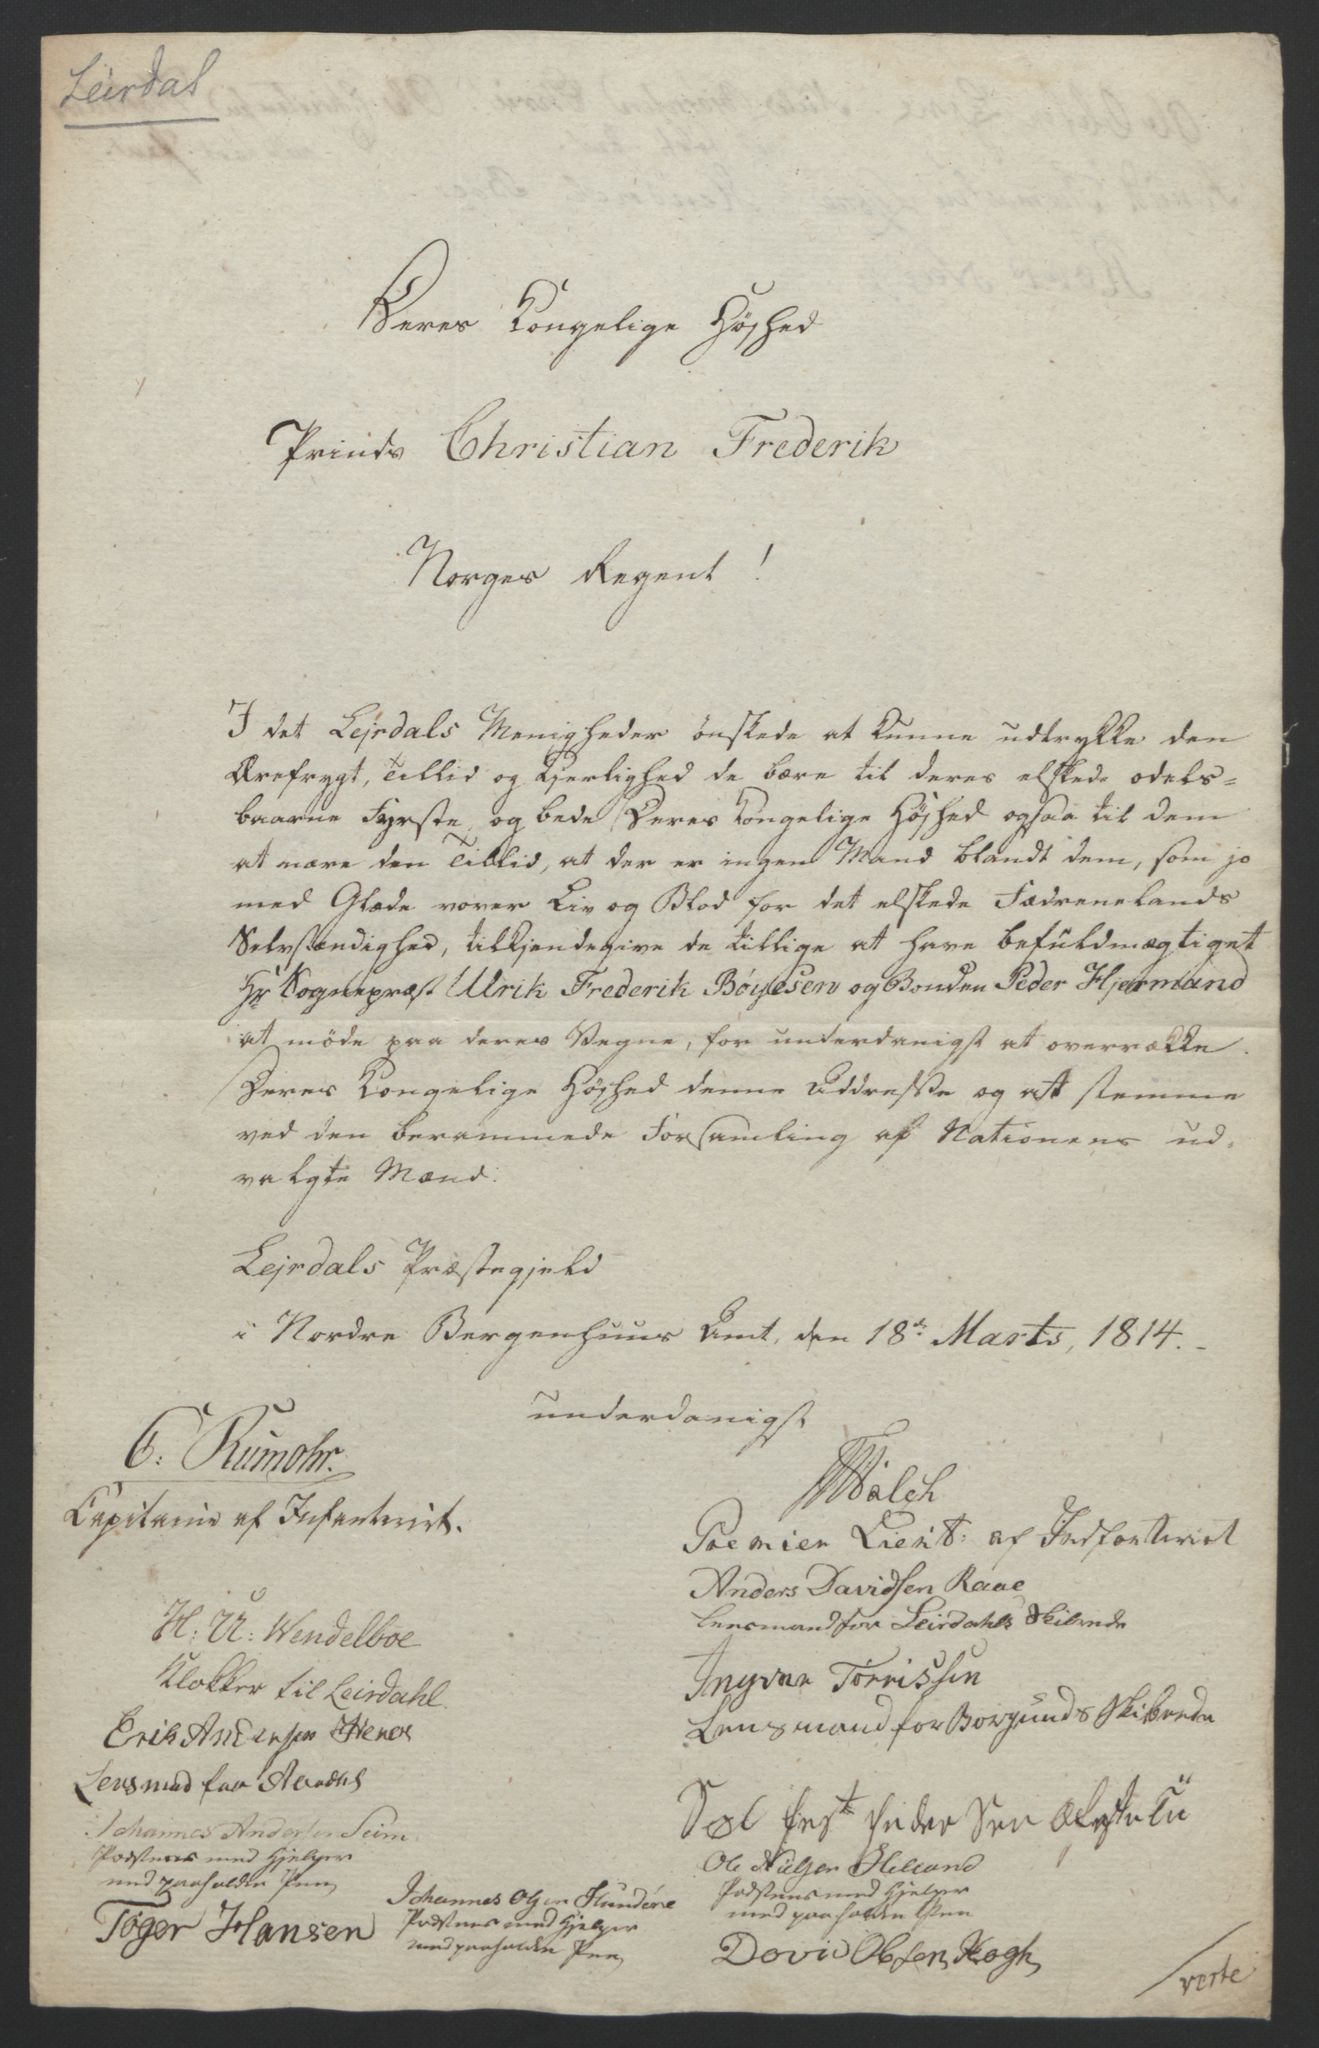 Leirdal
Deres Kongelige Højhed
Prinds Christian Frederik
Norges Regent!
I det Lejrdals Menigheder ønskede at kunne udtrykke den
Ærefrygt, Tillid og Kjerlighed de bære til deres elskede odels-
baarne Fyrste, og bede Deres Kongelige Højhed ogsaa til dem
at nære den Tillid, at der er ingen Mand blandt dem, som jo
med Glæde vover Liv og Blod for det elskede Fædrenelands
Selvstændighed, tilkjendegive de tillige at have befuldmægtiget
Hr Sognepræst Ulrik Frederik Bøyesen og Bonden Peder Hjermand
at møde paa deres Vegne, for underdanigst at overrække
Deres Kongelige Højhed denne Addresse og at stemme
ved den berammede Forsamling af Nationens ud-
valgte Mænd.
Lejrdals Præstegjeld
i Nordre Bergenhuus Amt, den 18de Marts, 1814.
underdanigst
C: Rumohr.
Capitaine af Infanteriet.
Walch
Premier Lieut: af Infanteriet
Anders Davidsen Raae
Lensmand for Leirdahls Skibrede
H: U: Wendelboe
Klokker til Leirdahl
Ingvar Torrissen
Lensmand for Borgunds Skibrede
Erik Andersen
Lensmand for Aardal
Johannes Andersen Seim
med paaholden Pen
Ole Nielsen Helland
med paaholden Pen
Johannes Olsen
med paaholden Pen
Tøger Hansen
David Olsen Hogh
verte